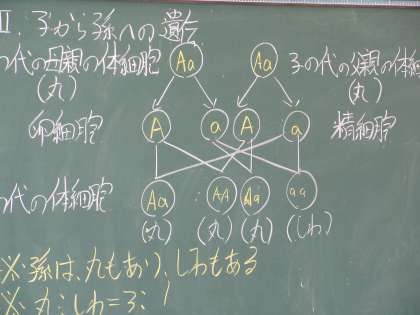 Ⅱ. 子から孫への遺伝
の代の母親の体細胞 Aa Aa 子の代の父親の体細
(丸) (丸)
卵細胞 A a A a 精細胞
の代の体細胞 Aa AA Aa aa
(丸) (丸) (丸) (しわ)
※孫は、丸もあり、しわもある
※丸:しわ=3:1